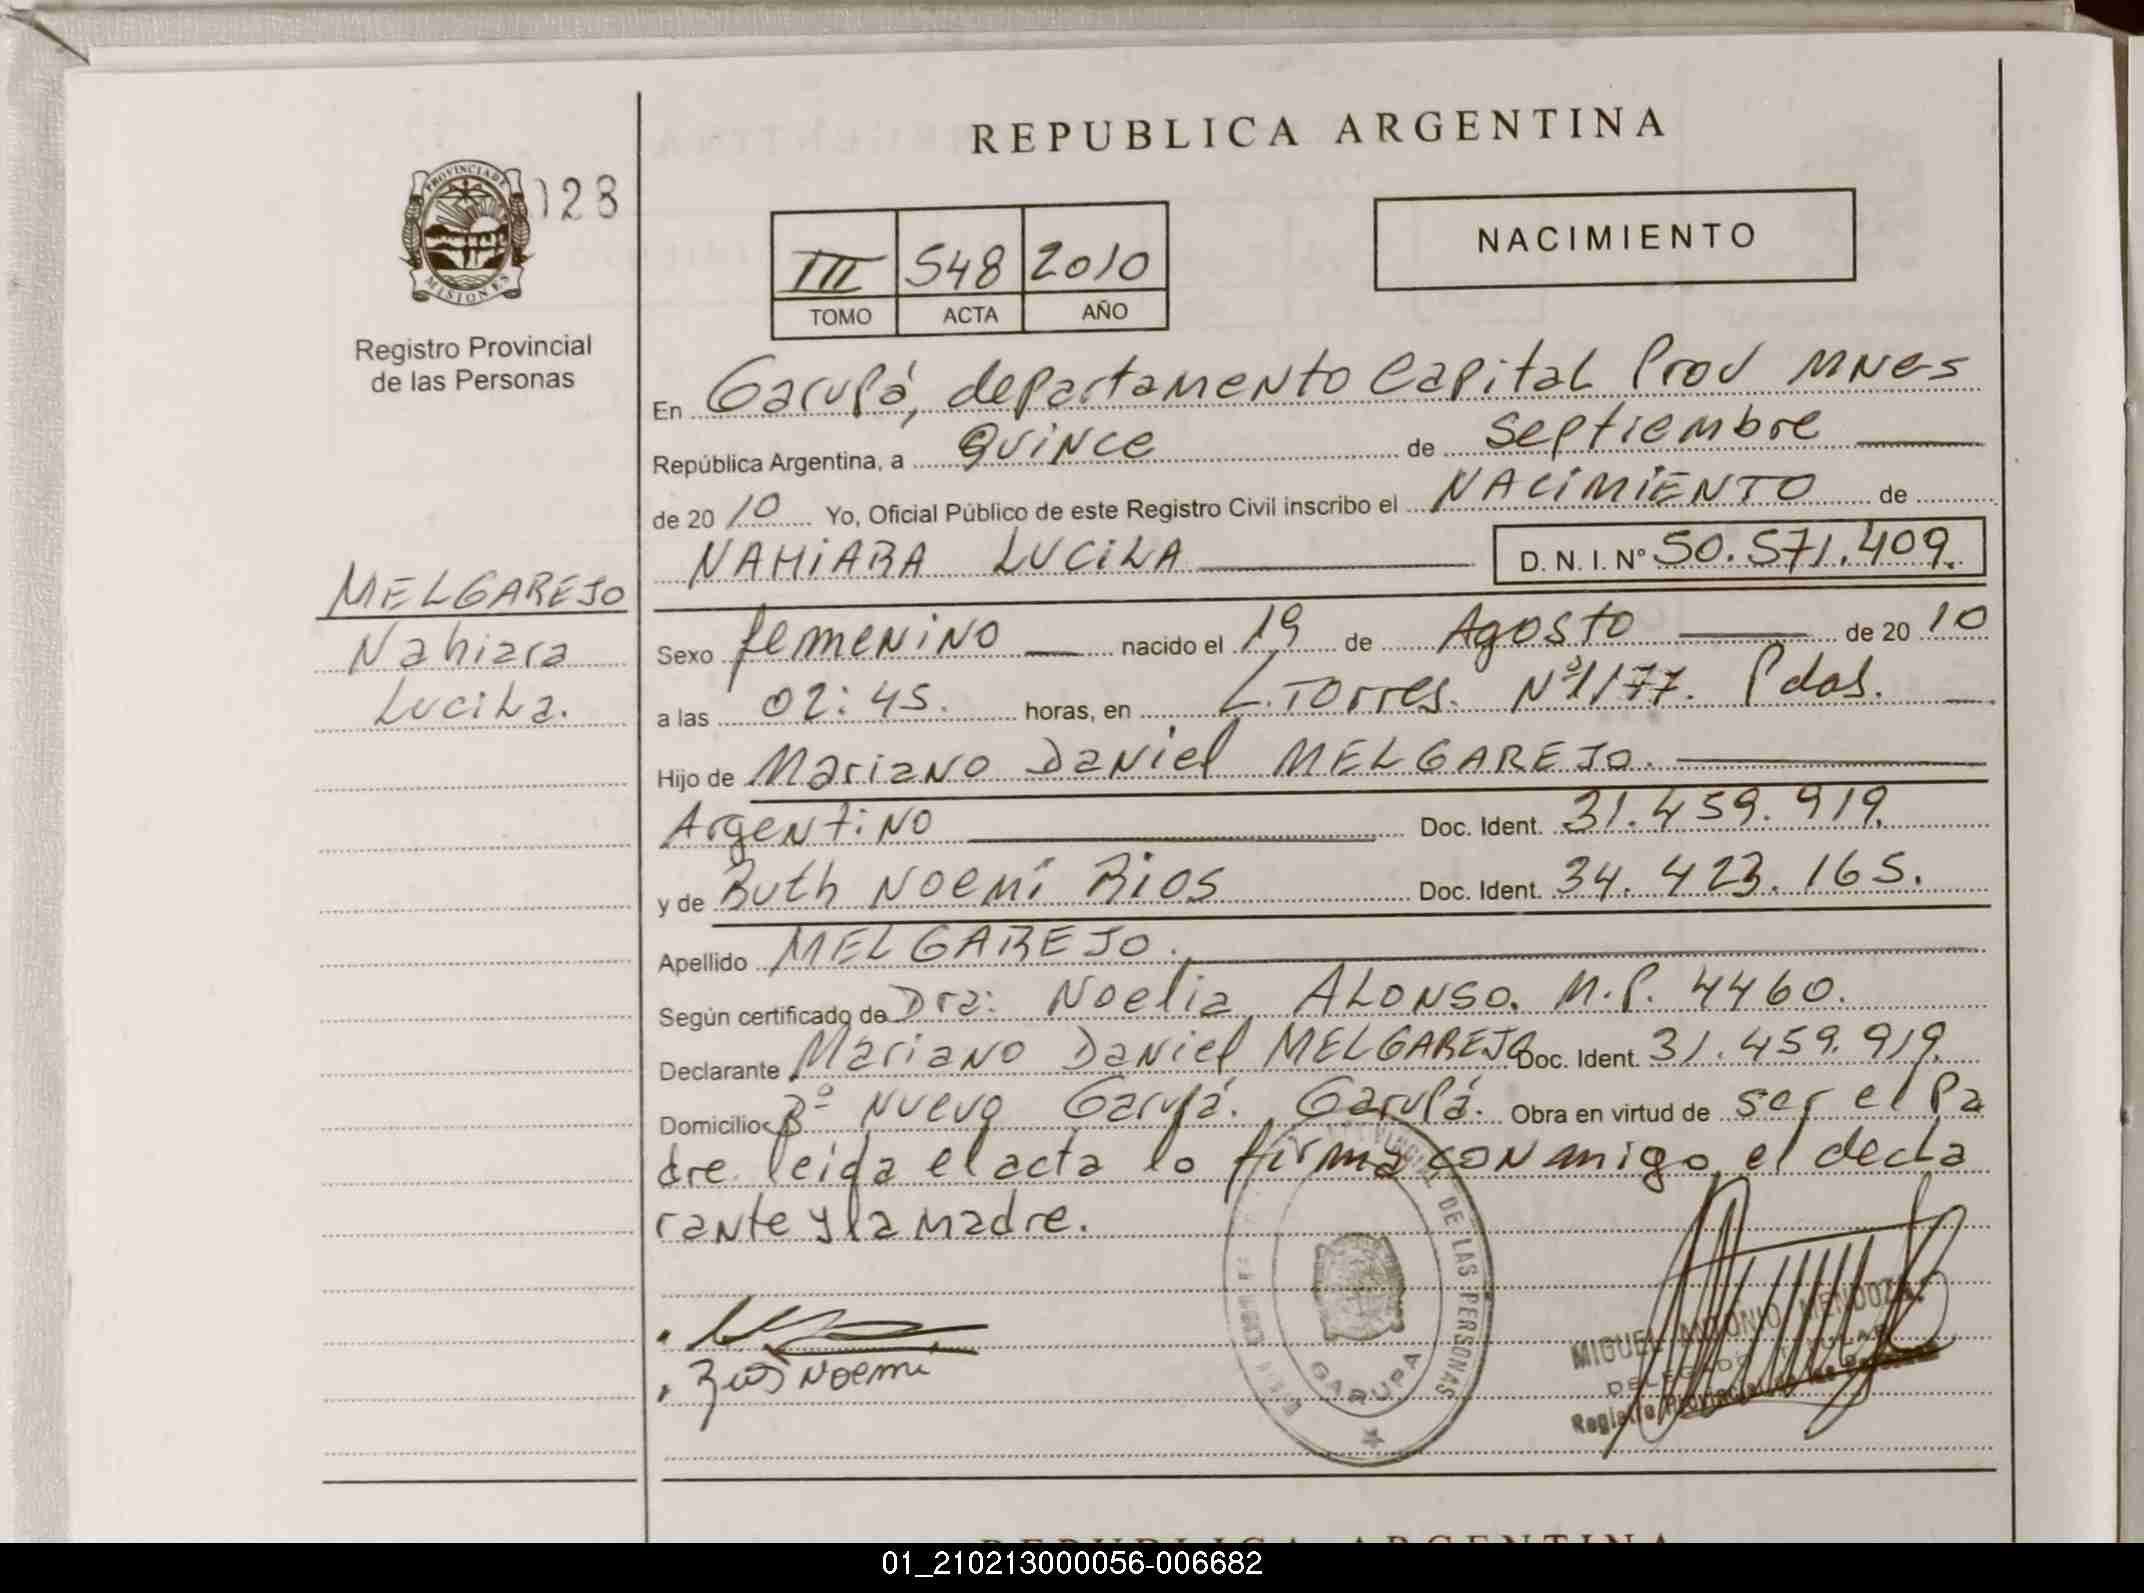 REPUBLICA ARGENTINA
PROVINCIA DE
MISIONES
128
Registro Provincial
de las Personas
III 548 2010
TOMO ACTA AÑO
NACIMIENTO
En Garupá, departamento Capital Prov MNes
República Argentina, a Quince de Septiembre
de 2010 Yo, Oficial Público de este Registro Civil inscribo el NACIMIENTO de
NAHIARA LUCILA D. N. I. Nº 50.571.409.
MELGAREJO
Nahiara
Lucila.
Sexo femenino nacido el 19 de Agosto de 2010
a las 02:45. horas, en L. Torres. Nº 1177. Pdas.
Hijo de Mariano Daniel MELGAREJO.
Argentino Doc. Ident. 31.459.919.
y de Ruth Noemí Rios Doc. Ident. 34.423.165.
Apellido MELGAREJO.
Según certificado de Dra: Noelia ALONSO. M.P. 4460.
Declarante Mariano Daniel MELGAREJO Doc. Ident. 31.459.919.
Domicilio Bº Nuevo Garupá. Garupá. Obra en virtud de ser el Pa
dre leida el acta lo firma conmigo el decla
rante y la madre.
DE LAS PERSONAS
GARUPA
Noemi
MIGUEL ANTONIO MENDOZA
DELEGADO TITULAR
Registro Provincial de las Personas
REPUBLICA ARGENTINA
01_210213000056-006682